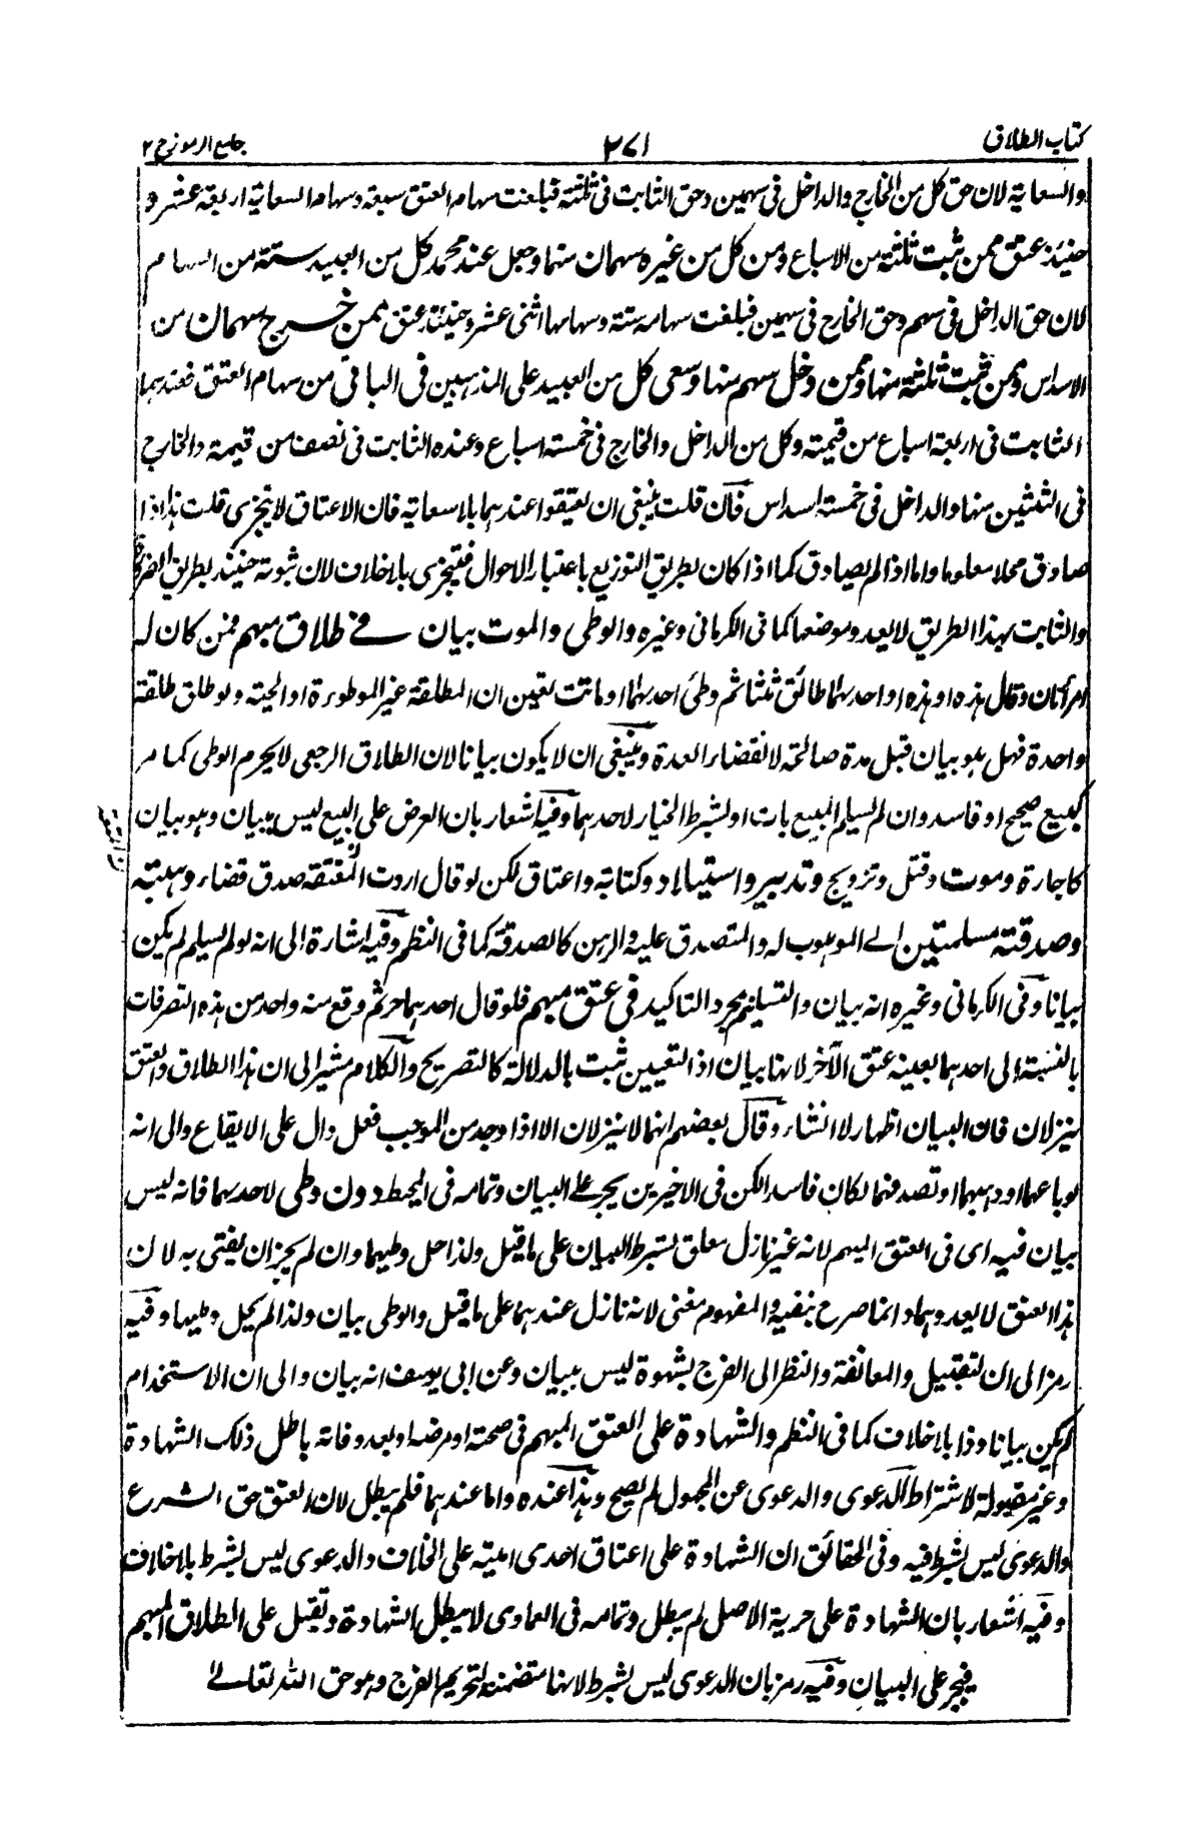 كتاب الطلاق ٢٧١ جامع الرموز ج ٢
والسعاية لان حق كل من الخارج والداخل فى سهمين وحق الثابت فى ثلثة فبلغت سهام العتق سبعة وسهام السعاية اربعة عشر و
حينئذ عتق ممن ثبت ثلثة من الاسباع ومن كل من غيره سهمان منها وجعل عند محمد كل من العبيد ستة من السهام
لان حق الداخل فى سهم وحق الخارج فى سهمين فبلغت سهامه ستة وسهامها اثنى عشر وحينئذ عتق ممن خرج سهمان من
الاسداس وممن ثبت ثلثة منها وممن دخل سهم منها وسعى كل من العبيد على المذهبين فى الباقى من سهام العتق فعندهما
الثابت فى اربعة اسباع من قيمته وكل من الداخل والخارج فى خمسة اسباع وعنده الثابت فى نصف من قيمته والخارج
فى الثلثين منها والداخل فى خمسة اسداس فان قلت ينبغى ان يعتقوا عندهما بلا سعاية فان الاعتاق لا يتجزى قلت هذا اذا
صادق محلا معلوما واما اذا لم يصادق كما اذا كان بطريق التوزيع باعتبار الاحوال فيتجزى بلا خلاف لان ثبوته حينئذ بطريق الضرورة
والثابت بهذا الطريق لا يعدو موضعها كما فى الكرمانى وغيره والوطى والموت بيان فى طلاق مبهم فمن كان له
امرأتان وقال هذه او هذه او احدهما طالق ثلثا ثم وطئ احدهما او ماتت تعين ان المطلقة غير الموطوءة او الحية ولو طلق طلقة
واحدة فهل هو بيان قبل مدة صالحة لانقضاء العدة وينبغى ان لا يكون بيانا لان الطلاق الرجعى لا يحرم الوطى كما مر
كبيع صحيح او فاسد وان لم يسلم المبيع بات او بشرط الخيار لاحدهما وفيه اشعار بان العرض على البيع ليس ببيان وهو بيان
كاجارة وموت وقتل وتزويج وتدبير واستيلاد وكتابة واعتاق لكن لو قال اردت المعتقة صدق قضاء وهبة
وصدقة مسلمتين الى الموهوب له والمتصدق عليه والرهن كالصدقة كما فى النظم وفيه اشارة الى انه لو لم يسلم لم يكن
بيانا وفى الكرمانى وغيره انه بيان والتسليم مجرد التاكيد فى عتق مبهم فلو قال احدهما حر ثم وقع منه واحد من هذه التصرفات
بالنسبة الى احدهما بعينه عتق الآخر لانها بيان اذ التعيين ثبت بالدلالة كالتصريح والكلام مشير الى ان هذا الطلاق والعتق
ينزلان فان البيان اظهار لا انشاء وقال بعضهم انهما لا ينزلان الا اذا وجد من الموجب فعل دال على الايقاع والى انه
لو باعهما او وهبهما او تصدقهما لكان فاسدا لكن فى الاخيرين يجبر على البيان وتمامه فى المحيط دون وطى لاحدهما فانه ليس
بيان فيه اى فى العتق المبهم لانه غير نازل معلق بشرط البيان على ما قيل ولذا حل وطيهما وان لم يجز ان يفتى به لان
هذا العتق لا يعدوهما وانما صرح بنفيه والمفهوم مغنى لانه نازل عندهما على ما قيل والوطى بيان ولذا لم يحل وطيهما وفيه
رمز الى ان التقبيل والمعانقة والنظر الى الفرج بشهوة ليس ببيان وعن ابى يوسف انه بيان والى ان الاستخدام
لم يكن بيانا وذا بلا خلاف كما فى النظم والشهادة على العتق المبهم فى صحته او مرضه او بعد وفاته باطل ذلك الشهادة
وغير مقبولة لاشتراط الدعوى والدعوى عن المجهول لم يصح وهذا عنده واما عندهما فلم يبطل لان العتق حق الشرع
والدعوى ليس بشرط فيه وفى الحقائق ان الشهادة على اعتاق احدى امتيه على الخلاف والدعوى ليس بشرط بلا خلاف
وفيه اشعار بان الشهادة على حرية الاصل لم يبطل وتمامه فى العمادى لا يبطل الشهادة وتقبل على الطلاق المبهم
فيجبر على البيان وفيه رمز بان الدعوى ليس بشرط لانها متضمنة لتحريم الفرج وهو حق الله تعالى